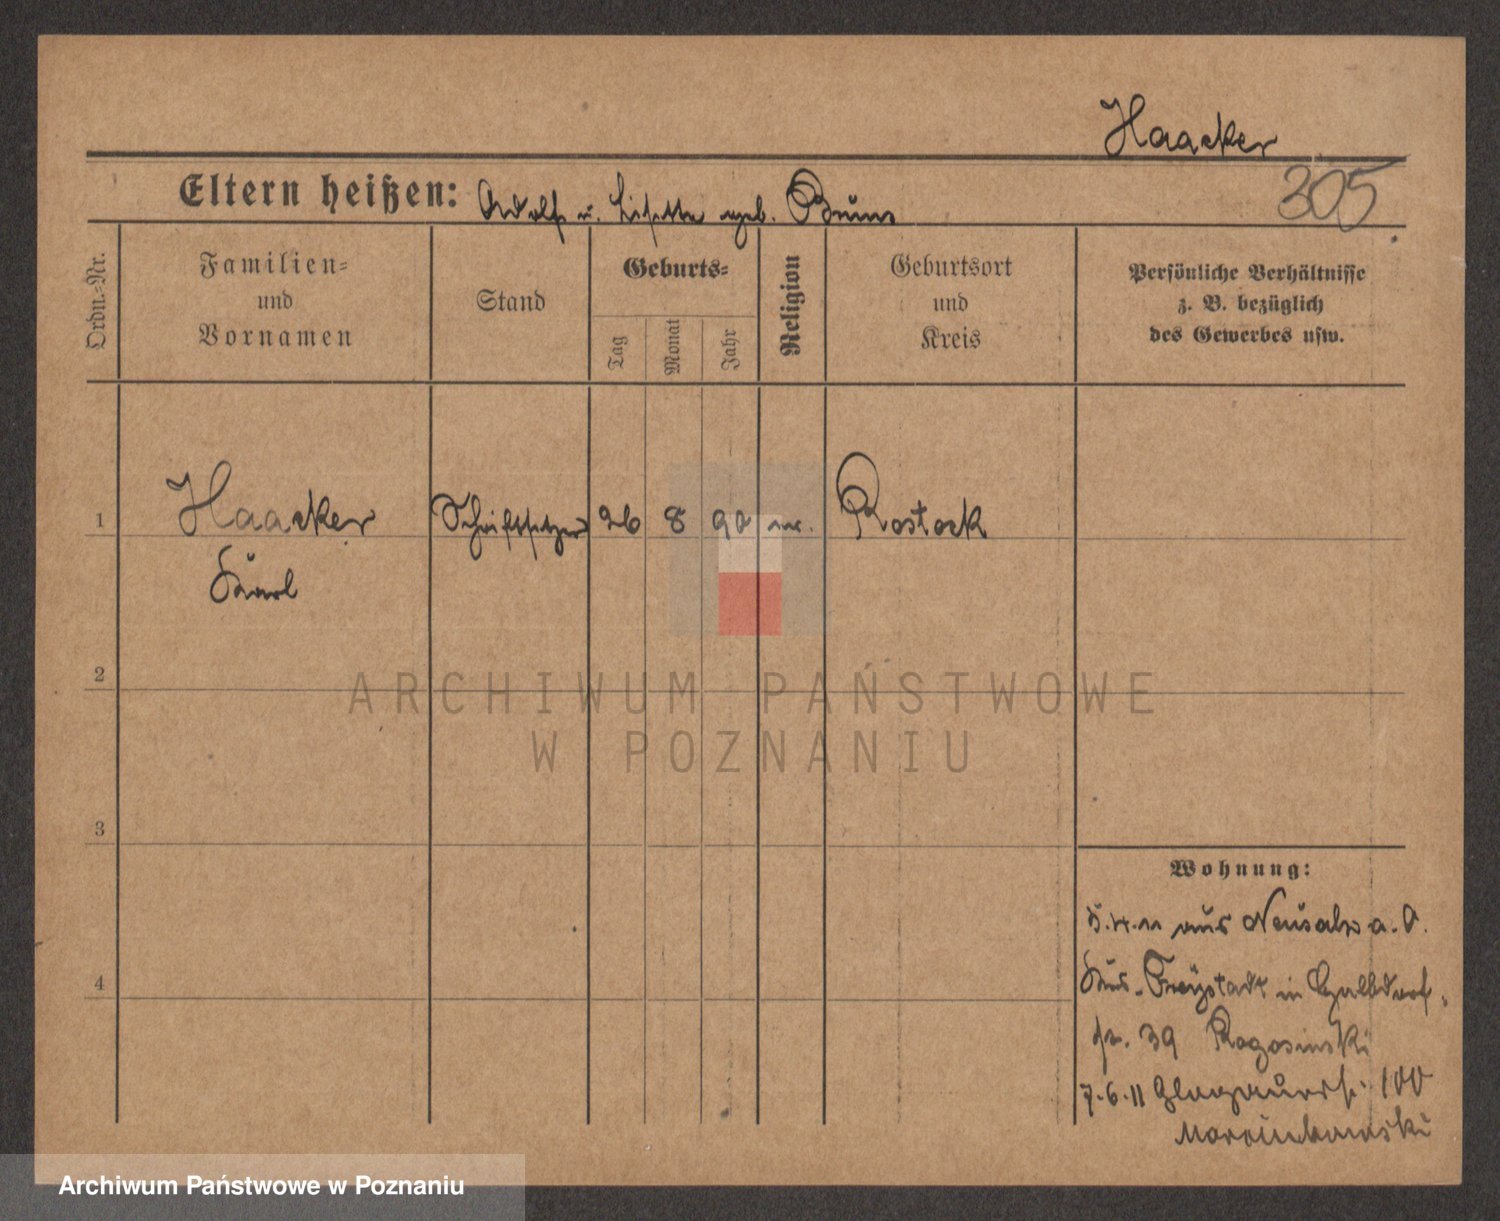 Haacker
305
Eltern heißen: Adolf u. Lisette geb. Bruns
Ordn.-Nr.
Familien-
und
Vornamen
Stand
Geburts-
Tag
Monat
Jahr
Religion
Geburtsort
und
Kreis
Persönliche Verhältnisse
z. B. bezüglich
des Gewerbes usw.
1
Haacker
Karl
Schriftsetzer
26
8
90
Rostock
2
3
4
Wohnung:
5.4.11 aus Neusalz a. O.
Kr. Freystadt in
str. 39 Rogosinski
7.6.11 Glogauerstr. 100
Marcinkowski
ARCHIWUM PAŃSTWOWE
W POZNANIU
Archiwum Państwowe w Poznaniu